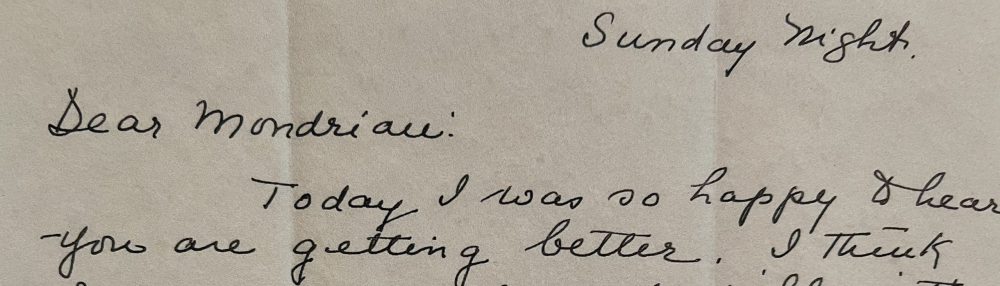 Sunday Night.
Dear Mondrian:
Today I was so happy to hear
you are getting better. I think